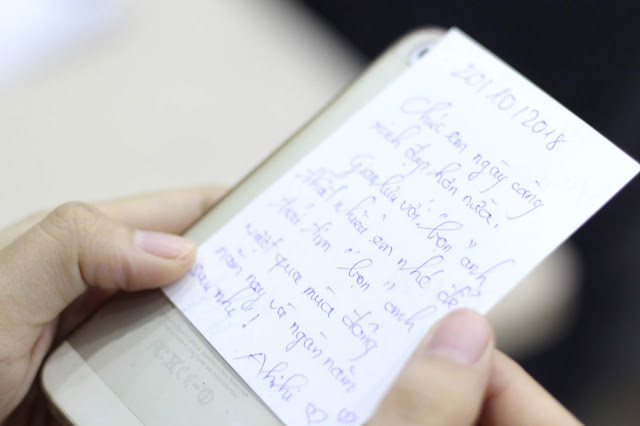 20/10/2018
Chúc em ngày càng
xinh đẹp hơn nữa.
Giao lưu với "bọn" anh
thật nhiều em nhé để
trái tim "bọn" anh
vượt qua mùa đông
năm nay và ngàn năm
sau nhé!
Ahihi